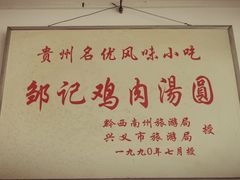 贵州名优风味小吃
邹记鸡肉湯圓
黔西南州旅游局
兴义市旅游局 授
一九九〇年七月授